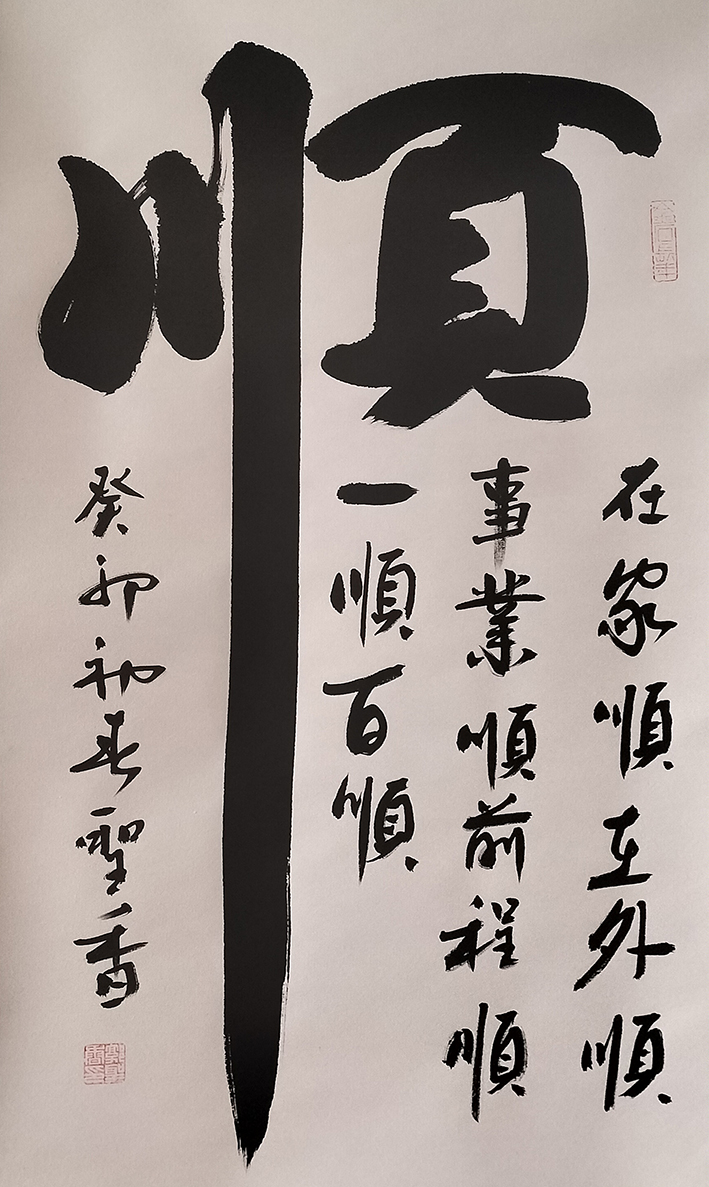 順
在家順在外順
事業順前程順
一順百順
癸卯初春聖香